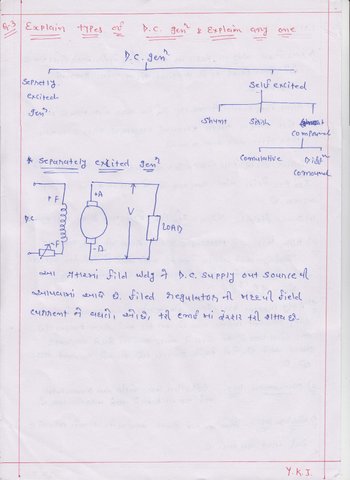 Q.3 Explain types of D.C. genr & Explain any one
D.C. genr
Sepretly
excited
genr.
Self excited
Shunt
Compound
Comulative
Compound
* Separately excited genr
+F
+A
D.C.
V
LOAD
-F
-A
આ પ્રકારમાં field wdg ને D.C. supply out source થી
આપવામાં આવે છે. filed regulator ની મદદથી field
current ને વધારી, ઓછો, કરી emf માં ફેરફાર કરી શકાય છે.
Y.K.J.